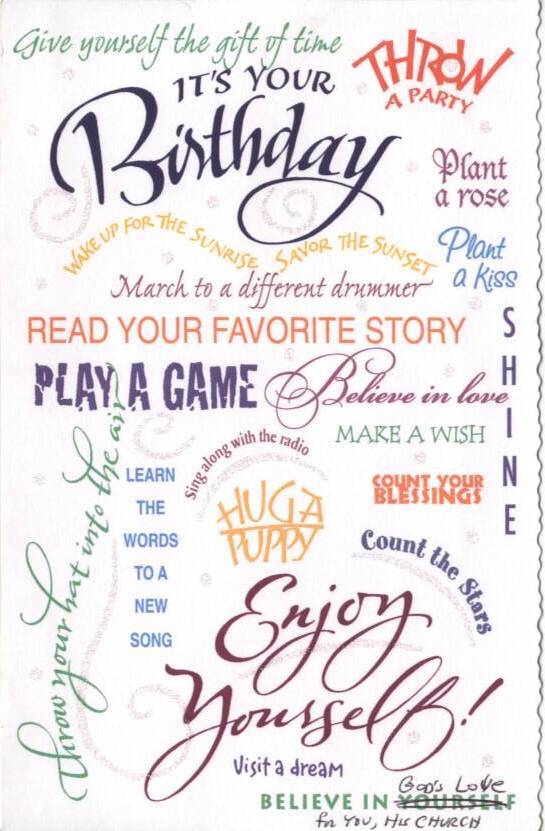 Give yourself the gift of time
THROW
A PARTY
IT'S YOUR
Birthday
Plant
a rose
WAKE UP FOR THE SUNRISE
SAVOR THE SUNSET
Plant
a Kiss
March to a different drummer
READ YOUR FAVORITE STORY
SHINE
PLAY A GAME
Believe in love
Throw your hat into the air
Sing along with the radio
MAKE A WISH
LEARN
THE
WORDS
TO A
NEW
SONG
HUG A
PUPPY
COUNT YOUR
BLESSINGS
Count the Stars
Enjoy
Yourself!
Visit a dream
God's Love
BELIEVE IN YOURSELF
for You, His CHURCH